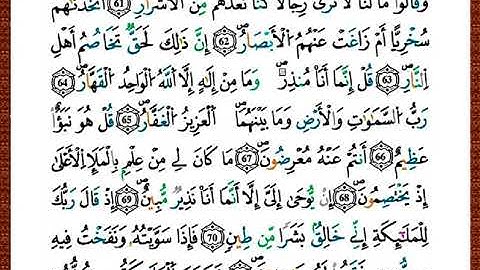 وَقَالُوا۟ مَا لَنَا لَا نَرَىٰ رِجَالًا كُنَّا نَعُدُّهُم مِّنَ ٱلْأَشْرَارِ 61 أَتَّخَذْنَٰهُمْ
سُخْرِيًّا أَمْ زَاغَتْ عَنْهُمُ ٱلْأَبْصَٰرُ 62 إِنَّ ذَٰلِكَ لَحَقٌّ تَخَاصُمُ أَهْلِ
ٱلنَّارِ 63 قُلْ إِنَّمَآ أَنَا۠ مُنذِرٌ وَمَا مِنْ إِلَٰهٍ إِلَّا ٱللَّهُ ٱلْوَٰحِدُ ٱلْقَهَّارُ 64
رَبُّ ٱلسَّمَٰوَٰتِ وَٱلْأَرْضِ وَمَا بَيْنَهُمَا ٱلْعَزِيزُ ٱلْغَفَّٰرُ 65 قُلْ هُوَ نَبَؤٌا۟
عَظِيمٌ 66 أَنتُمْ عَنْهُ مُعْرِضُونَ 67 مَا كَانَ لِىَ مِنْ عِلْمٍۭ بِٱلْمَلَإِ ٱلْأَعْلَىٰٓ
إِذْ يَخْتَصِمُونَ 68 إِن يُوحَىٰٓ إِلَىَّ إِلَّآ أَنَّمَآ أَنَا۠ نَذِيرٌ مُّبِينٌ 69 إِذْ قَالَ رَبُّكَ
لِلْمَلَٰٓئِكَةِ إِنِّى خَٰلِقٌۢ بَشَرًا مِّن طِينٍ 70 فَإِذَا سَوَّيْتُهُۥ وَنَفَخْتُ فِيهِ